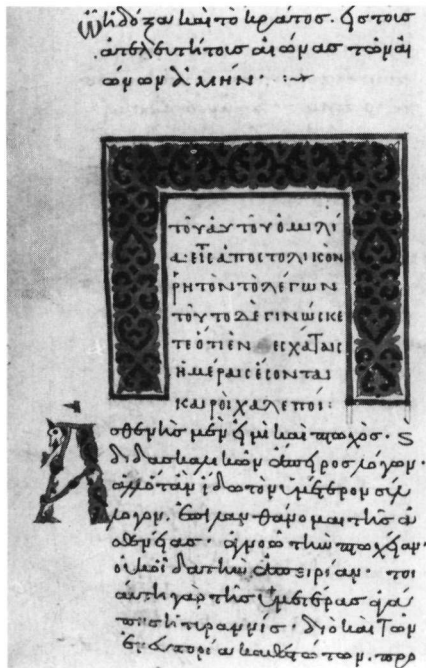 ᾧ ἡ δόξα καὶ τὸ κράτος. εἰς τοὺς
ἀτελευτήτους αἰῶνας τῶν αἰ
ώνων ἀμήν· :~
τοῦ αὐτοῦ ὁμιλί
α εἰς ἀποστολικὸν
ῥητὸν τὸ λέγων
τοῦτο δὲ γινώσκε
τε ὅτι ἐν ἐσχάταις
ἡμέραις ἔσονται
καιροὶ χαλεποί:
Ἀσθενὴς μὲν εἰμὶ καὶ πτωχὸς· καὶ
διδασκαλικῶν ἄπειρος λόγων·
ἀλλ' ὅταν ἴδω τὸν ὑμέτερον σύλ
λογον, ἐπιλανθάνομαι τῆς ἀ
σθενείας· ἀγνοῶ τὴν πτωχείαν·
οὐκ οἶδα τὴν ἀπειρίαν· τοι
αύτη γὰρ τῆς ὑμετέρας ἀγά
πης ἡ τυραννίς· διὸ καὶ τῶν
ἐν εὐπορία καθεστώτων. προ